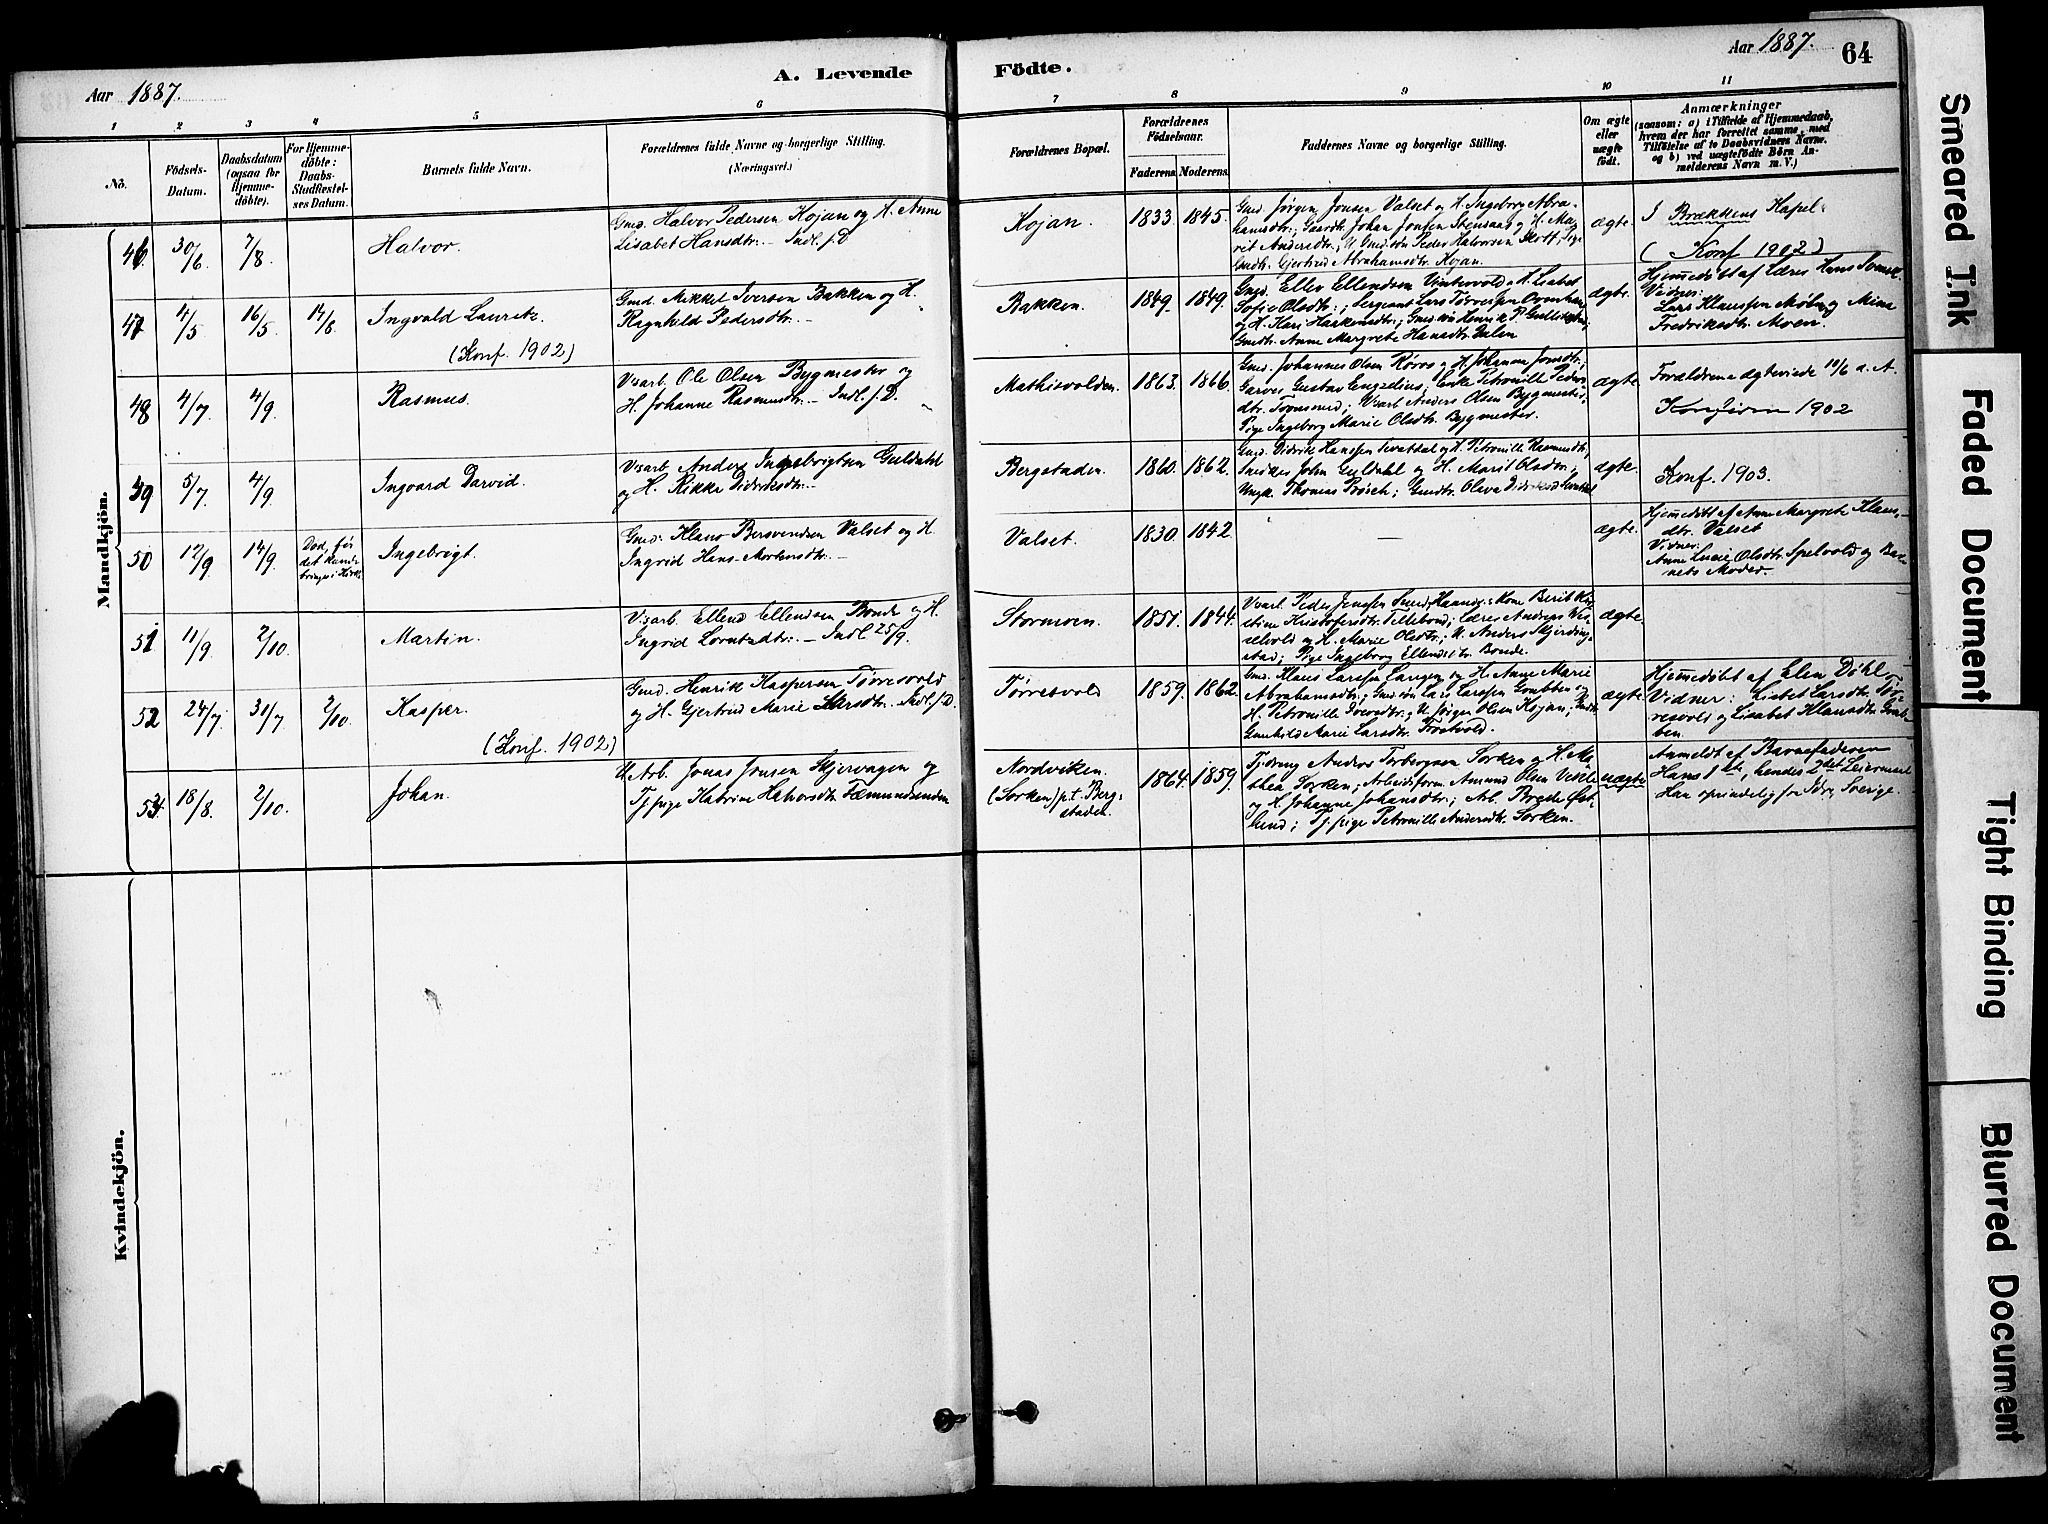 Aar 1887.
A. Levende Födte.
Aar 1887. 64
1 2 3 4 5 6 7 8 9 10 11
No.
Födsels-
Datum.
Daabsdatum
(ogsaa for
Hjemme-
döbte).
For Hjemme-
döbte:
Daabs-
Stadfæstel-
ses Datum.
Barnets fulde Navn.
Forældrenes fulde Navne og borgerlige Stilling.
(Næringsvei.)
Forældrenes Bopæl.
Forældrenes
Födselsaar.
Faderens. Moderens.
Faddernes Navne og borgerlige Stilling.
Om ægte
eller
uægte
födt.
Anmærkninger
(saasom: a) i Tilfælde af Hjemmedaab,
hvem der har forrettet samme, med
Tilföielse af to Daabsvidners Navne,
og b) ved uægtefödte Börn An-
melderens Navn m. V.)
Mandkjön.
46. 30/6 7/8
Halvor.
Gmd. Halvor Pedersen Kojan og H. Anne
Lisabet Hansdtr. – Indl. s. D
Kojan. 1833. 1845.
Gmd. Jørgen Jonsen Valset og H. Ingeborg Abra-
hamsdtr.; Gaardbr. Johan Jonsen Stensaas og H. Ma-
rit Andersdtr.; U. Gmd.søn Peder Halvorsen Pige
Gmdtr. Gjertrud Abrahamsdtr. Kojan.
ægte.
I Brækkens Kapel.
(Konf 1902)
47 4/5 16/5 14/8
Ingvald Lauritz.
(Konf. 1902)
Gmd. Mikkel Iversen Bakken og H.
Ragnhild Pedersdtr. –
Bakken. 1849. 1849.
Gmd. Ellev Ellendsen Vintervold og H. Lisabet
Sofie Olsdtr.; Sergeant Lars
og H. Kari Gmd.søn Henrik P.
Gmdtr. Anne Margrete Hansdtr. Dalen
ægte.
Hjemmedøbt af Lærer Hans
Vidner:
Lars Klaussen og Mina
Fredriksdtr. Moen.
48 4/7 4/9
Rasmus.
V:arb. Ole Olsen Bygmester og
H. Johanne Rasmusdtr. – Indl. s. D.
Mathisvolden. 1863. 1866.
Gmd. Johannes Olsen Røros og H. Johanne Jonsdtr.;
Garver Gustav Engzelius; Enke Petronille Peders-
dtr. V:arb. Anders Olsen Bygmester,
Pige Ingeborg Marie Olsdtr. Bygmester.
ægte.
Forældrene ægteviede 12/6 a. A.
Konfirm 1902
49 5/7 4/9
Ingvard Darvid.
V:arb. Anders Ingebrigtsen Guldahl
og H. Rikke Didriksdtr. –
Bergstaden. 1860. 1862.
Gmd. Didrik Hanssen og H. Petronille Rasmusdtr.,
Snedker John Guldahl og H. Marit Olsdtr.;
Ungk. Thomas Prösch; Gmdtr. Olava Didriksd.
ægte.
Konf. 1903.
50 12/9 14/9
Død, før
det kunde
bringes i Kirke
Ingebrigt.
Gmd. Klaus Bersvendsen Valset og H.
Ingrid Hans-Mortensdtr. –
Valset. 1830. 1842.
–
ægte.
Hjemmedøbt af Anne Margrete Klaus-
dtr. Valset
Vidner:
Anne Lucie Olsdtr. Spelvold og Bar-
nets Moder.
51 11/9 2/10
Martin.
V:arb. Ellend Ellendsen Bonde og H.
Ingrid Lorntsdtr. – Indl. 25/9.
Stormoen. 1851. 1844.
V:arb. Peder Jenssen Kone Berit Kri-
stine Kristofersdtr. Lærer Andreas
og H. Marie Olsdtr.; U. Anders Skjerding-
stad; Pige Ingeborg Ellendsdtr. Bonde.
ægte.
52 24/7 31/7 2/10
Kasper.
(Konf. 1902)
Gmd. Henrik Kaspersen Tørresvold
og H. Gjertrud Marie Larsdtr. Indl. s. D.
Tørresvold 1859. 1862.
Gmd. Klaus Larsen Langen og H. Anne Marie
Abrahamsdtr.; Gmd.søn Lars Larssen Grubben og
H. Petronille Iversdtr.; U. Jørgen Olsen Kojan; Gmdtr.
Gunhild Marie Larsdtr.
ægte.
Hjemmedøbt af Elen Döhl.
Vidner: Kistet Larsdtr. Tør-
resvold og Lisabet Klausdtr. Grub-
ben.
53. 18/8 2/10
Johan.
U. Arb. Jonas Jonsen Skjervagen og
Tj.pige Katrine Halvorsdtr. Fæmundsenden
Nordviken.
(Sorken) p.t. Berg-
staden.
1864. 1859.
Anders Torbergsen Sorken og H. Ma-
thea Sorken; Arbeidsform. Amund Olsen
og H. Johanne Johansdtr.; Arb. Brede Øst-
lund; Tj.pige Petronille Andersdtr. Sorken.
uægte
Anmeldt af Barnefaderen
Hans 1ste, hendes 2det Leiermaal
Han oprindelig fra Idre, Sverige.
Kvindekjön.
Smeared Ink
Faded Document
Tight Binding
Blurred Document